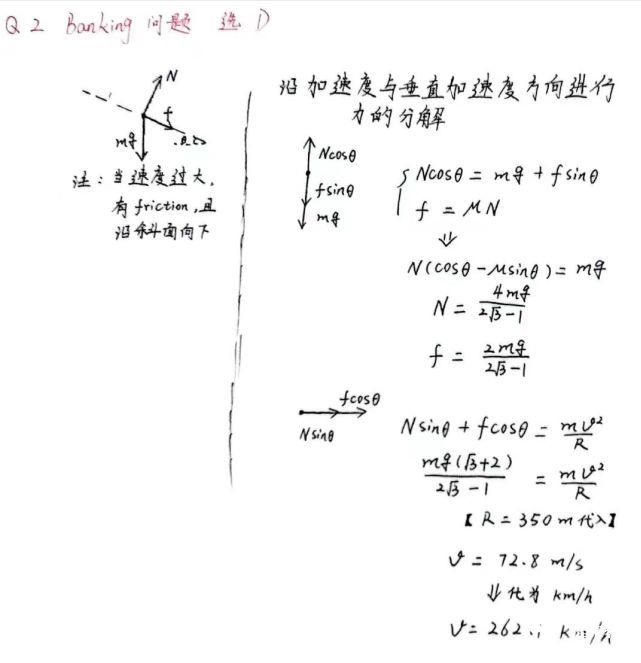 Q2 Banking 问题 选 D
N
f
mg
注：当速度过大，
有 friction，且
沿斜面向下
沿加速度与垂直加速度方向进行
力的分解
Ncosθ
fsinθ
mg
Ncosθ = mg + fsinθ
f = μN
⇓
N(cosθ - μsinθ) = mg
N = 4mg / 2√3-1
f = 2mg / 2√3-1
fcosθ
Nsinθ
Nsinθ + fcosθ = mv² / R
mg(√3+2) / 2√3-1 = mv² / R
【R = 350m 代入】
v = 72.8 m/s
⇓ 化为 km/h
v = 262. km/h